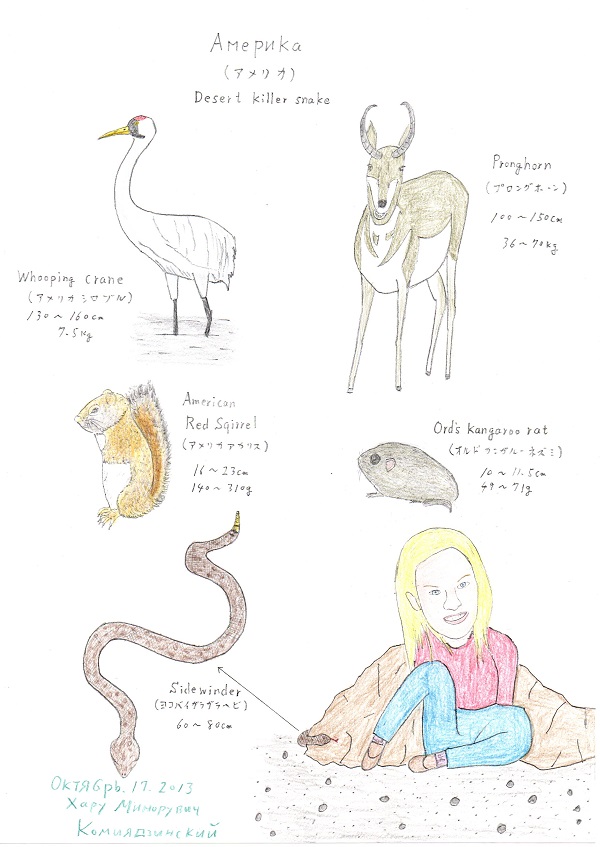 Америка
(アメリカ)
Desert killer snake
Pronghorn
(プロングホーン)
100~150cm
36~70kg
Whooping crane
(アメリカシロヅル)
130~160cm
7.5kg
American
Red Sqirrel
(アメリカアカリス)
16~23cm
140~310g
Ord's kangaroo rat
(オルドカンガルーネズミ)
10~11.5cm
49~71g
Sidewinder
(ヨコバイガラガラヘビ)
60~80cm
Октябрь.17.2013
Хару Минорувич
Комиядзинский